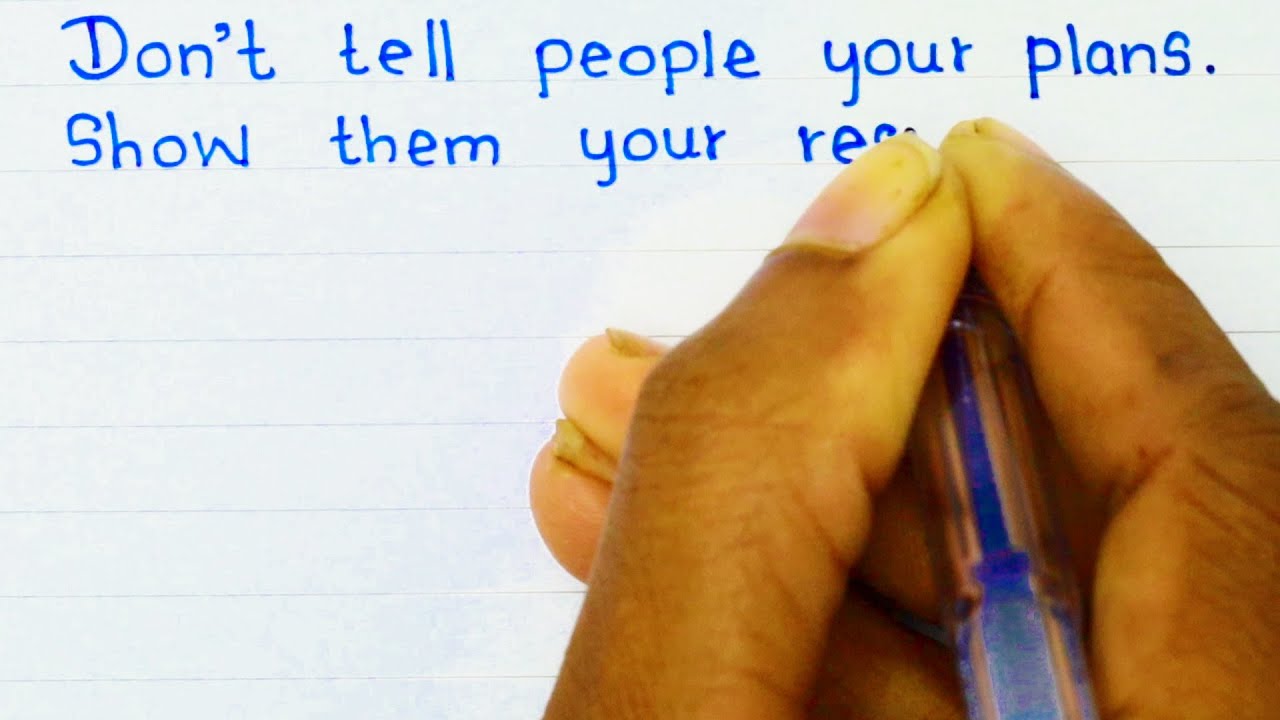 Don't tell people your plans.
Show them your res